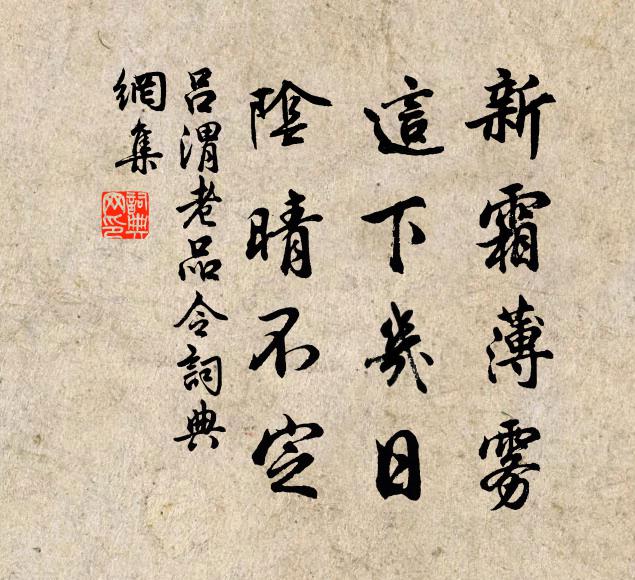 新霜薄雾
這下幾日
陰晴不定
吕渭老品令詞典
網集
詞典
网印